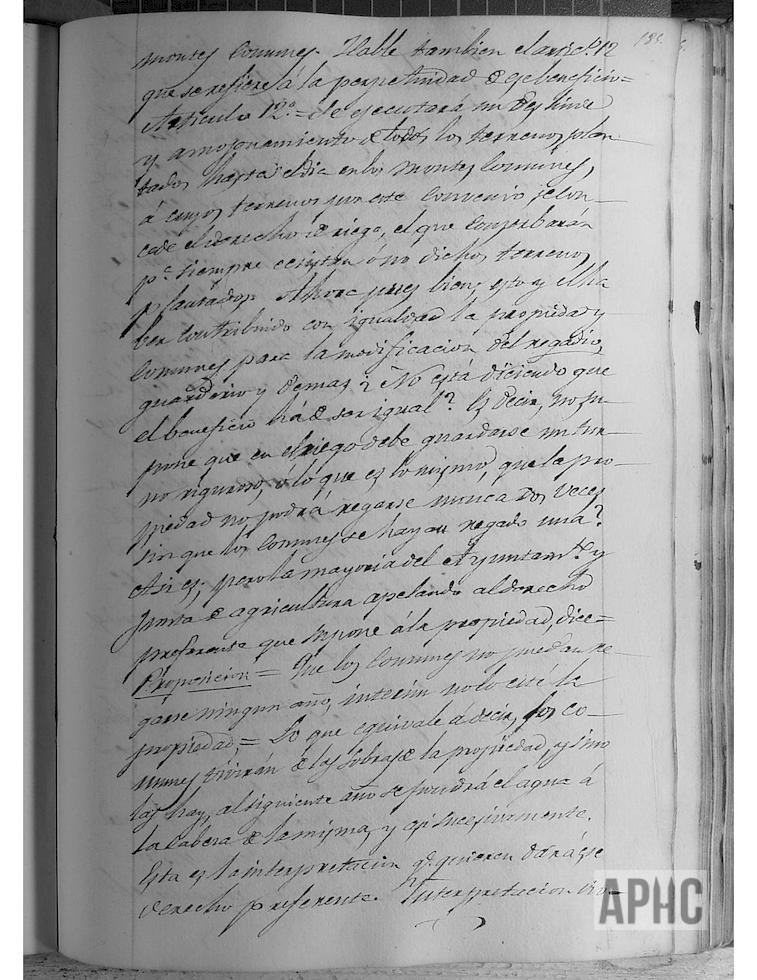 186.
montes Comunes. Hable tambien el artic.º 12
que se refiere á la perpetuidad de ese beneficio =
Articulo 12.º = Se ejecutará un deslinde
y amojonamiento de todos los terrenos plan
tados hasta el dia en los montes Comunes,
á cuyos terrenos por este convenio se con-
cede el derecho de riego, el que conserbarán
p.ª siempre ecsistan ó no dichos terrenos
plantados. Ahora pues bien, esto y el ha
ber contribuido con igualdad la propiedad y
Comunes para la modificacion del regadio,
guarderio y demas ¿No está diciendo que
el beneficio há de ser igual? Es decir, no su
pone que en el riego debe guardarse un tur
no riguroso, ó lo que es lo mismo, que la pro-
piedad no podrá regarse nunca dos veces
sin que los Comunes se hayan regado una?
Asi es; pero la mayoria del Ayuntam.to y
junta de agricultura apelando al derecho
preferente que supone á la propiedad, dice =
Proposicion = Que los comunes no puedan re
garse ningun año, interin no lo esté la
propiedad, = Lo que equivale á decir, los co-
munes vivirán de las sobras de la propiedad, y si no
las hay, al siguiente año se pondrá el agua á
la cabeza de la misma, y asi sucesivamente.
Esta es la interpretacion q.e quieren dár á ese
derecho preferente. Interpretacion